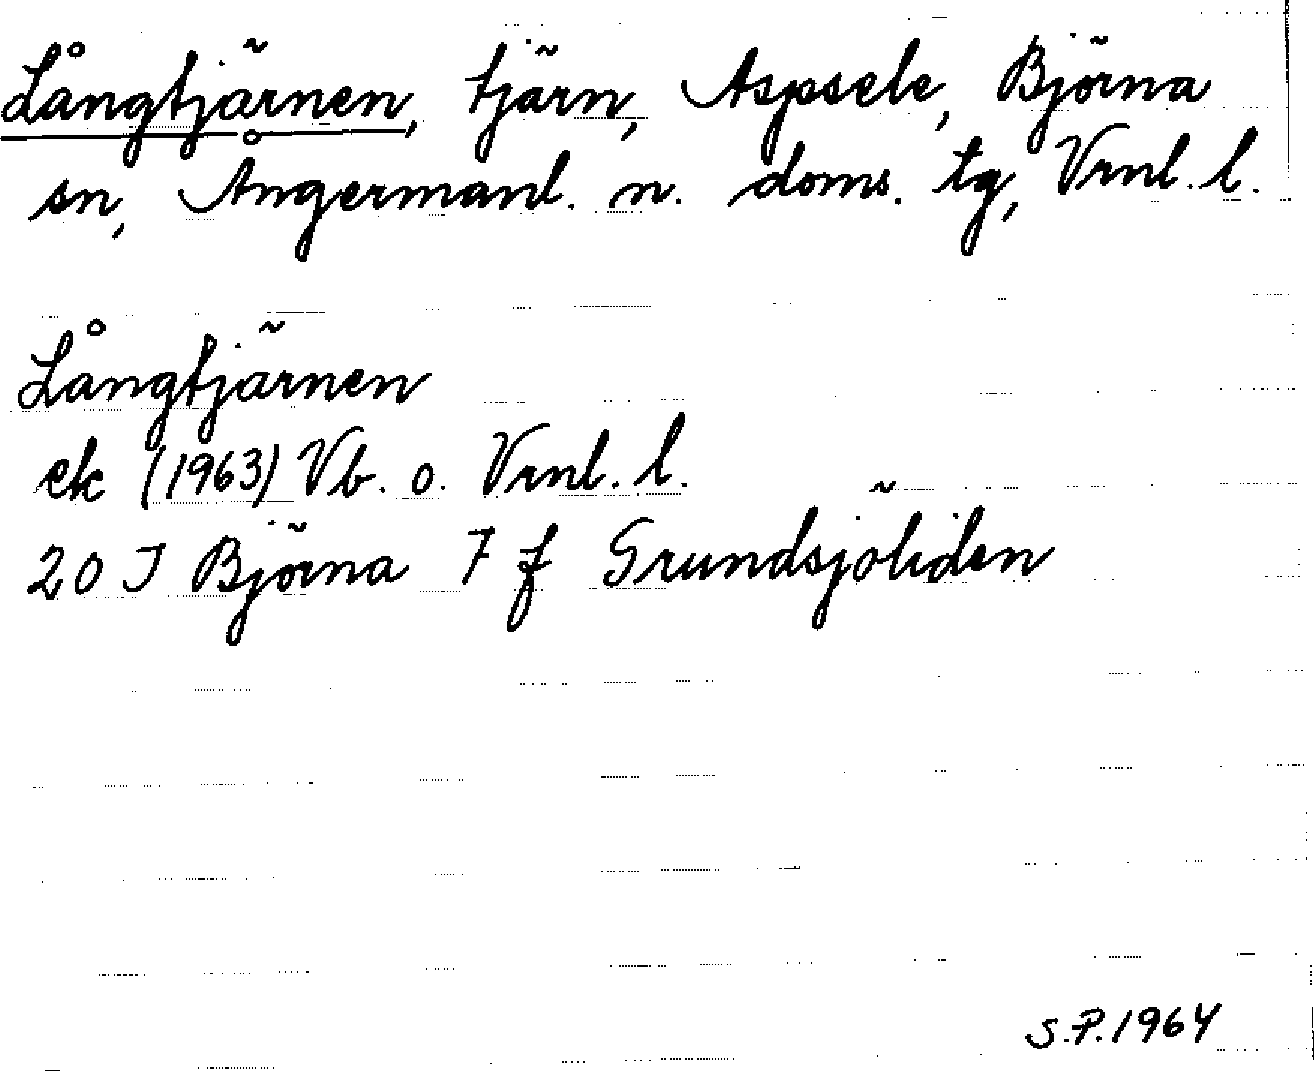 Långtjärnen, tjärn, Aspsele, Björna
sn, Ångermanl. n. doms. tg, Vrnl. l.
Långtjärnen
ek (1963) Vb. o. Vrnl. l.
20 J Björna 7 f Grundsjöliden
S.P. 1964